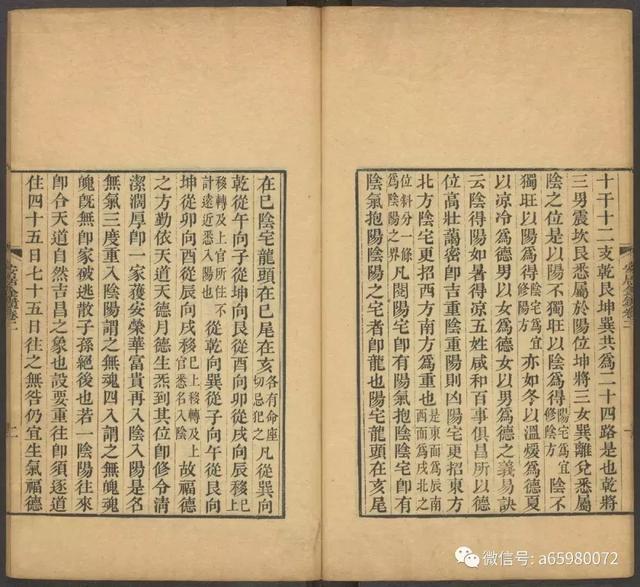 十干十二支乾艮坤巽共為二十四路是也乾將
三男震坎艮悉屬於陽位坤將三女巽離兌悉屬
陰之位是以陽不獨旺以陰為得陽宅為宜修陰方陰不
獨旺以陽為得陰宅為宜修陽方亦如冬以溫煖為德夏
以涼冷為德男以女為德女以男為德之義易訣
云陰得陽如暑得涼五姓咸和百事俱昌所以德
位高壯藹密即吉重陰重陽則凶陽宅更招東方
北方陰宅更招西方南方為重也是東面為辰南西面為戌北之
位斜分一條為陰陽之界凡閱陽宅即有陽氣抱陰陰宅即有
陰氣抱陽陰陽之宅者即龍也陽宅龍頭在亥尾
在巳陰宅龍頭在巳尾在亥各有命座切忌犯之凡從巽向
乾從午向子從坤向艮從酉向卯從戌向辰移巳
移轉及上官所住不計遠近悉入陽也從乾向巽從子向午從艮向
坤從卯向酉從辰向戌移巳上移轉及上官悉名入陰故福德
之方勤依天道天德月德生炁到其位即修令清
潔潤厚即一家獲安榮華富貴再入陰入陽是名
無氣三度重入陰陽謂之無魂四入謂之無魄魂
魄既無即家破逃散子孫絕後也若一陰陽往來
即合天道自然吉昌之象也設要重往即須逐道
住四十五日七十五日往之無咎仍宜生氣福德
安居金鏡卷二
二
微信号: a65980072